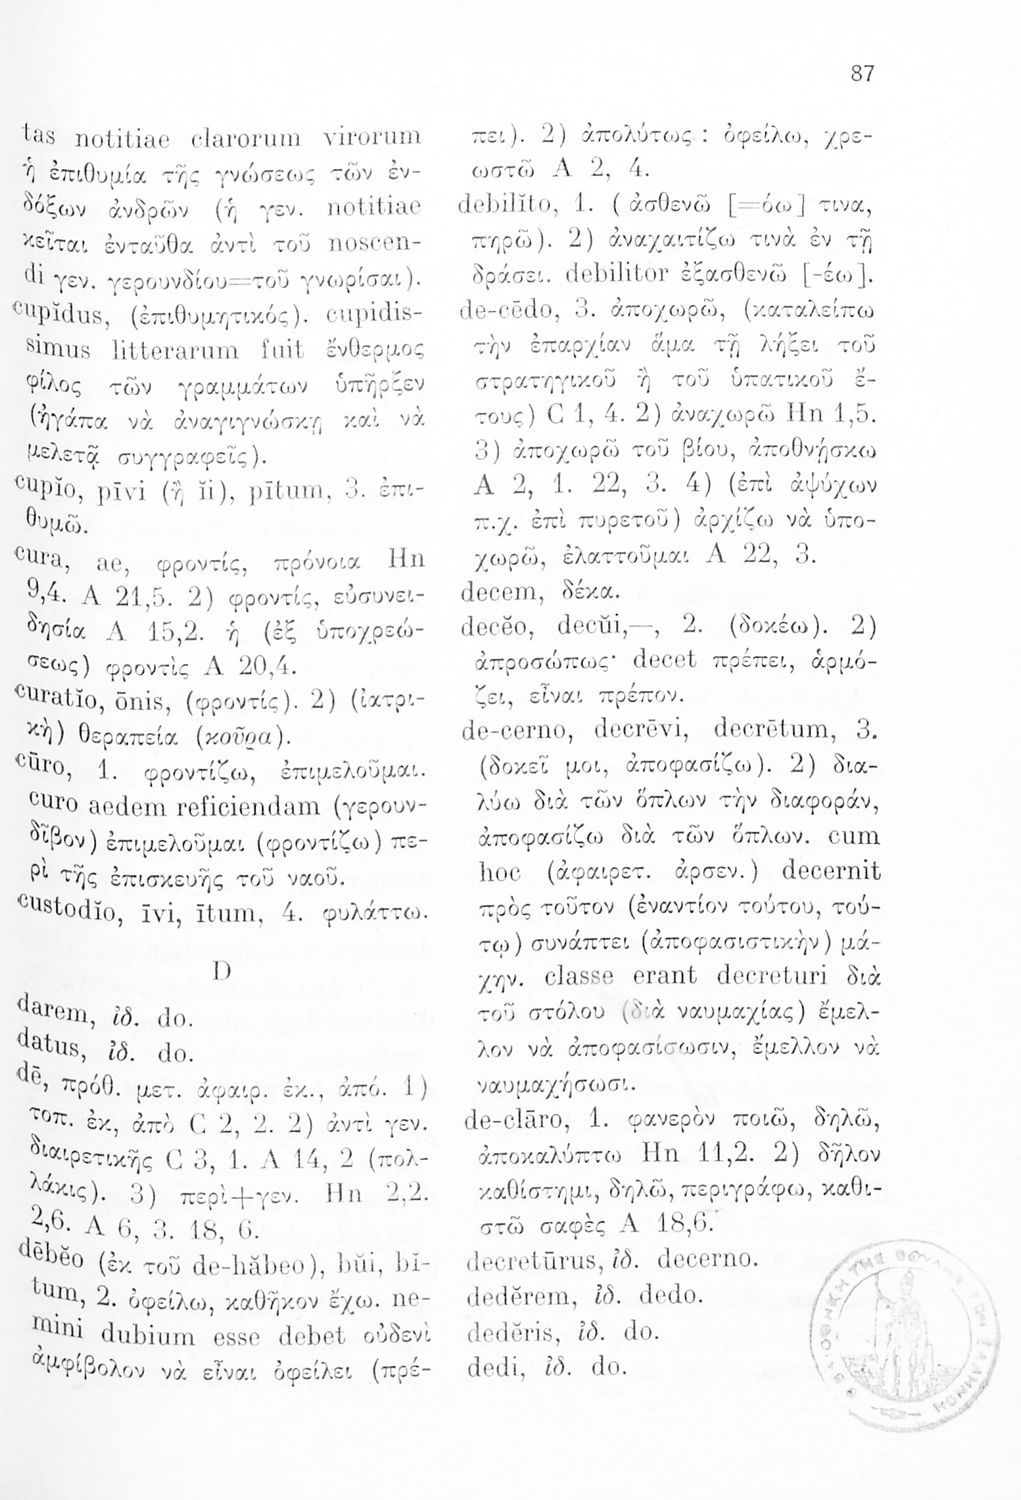 87
tas notitiae clarorum virorum
ἡ ἐπιθυμία τῆς γνώσεως τῶν ἐν-
δόξων ἀνδρῶν (ἡ γεν. notitiae
κεῖται ἐνταῦθα ἀντὶ τοῦ noscen-
di γεν. γερουνδίου=τοῦ γνωρίσαι).
cupĭdus, (ἐπιθυμητικός). cupidis-
simus litterarum fuit ἔνθερμος
φίλος τῶν γραμμάτων ὑπῆρξεν
(ἠγάπα νὰ ἀναγιγνώσκῃ καὶ νὰ
μελετᾷ συγγραφεῖς).
cupĭo, pīvi (ἢ ĭi), pītum, 3. ἐπι-
θυμῶ.
cura, ae, φροντίς, πρόνοια Hn
9,4. A 21,5. 2) φροντίς, εὐσυνει-
δησία A 15,2. ἡ (ἐξ ὑποχρεώ-
σεως) φροντὶς A 20,4.
curatĭo, ōnis, (φροντίς). 2) (ἰατρι-
κὴ) θεραπεία (κοῦρα).
cūro, 1. φροντίζω, ἐπιμελοῦμαι.
curo aedem reficiendam (γερουν-
δῖβον) ἐπιμελοῦμαι (φροντίζω) πε-
ρὶ τῆς ἐπισκευῆς τοῦ ναοῦ.
custodĭo, īvi, ītum, 4. φυλάττω.
D
darem, ἰδ. do.
datus, ἰδ. do.
dē, πρόθ. μετ. ἀφαιρ. ἐκ., ἀπό. 1)
τοπ. ἐκ, ἀπὸ C 2, 2. 2) ἀντὶ γεν.
διαιρετικῆς C 3, 1. A 14, 2 (πολ-
λάκις). 3) περὶ+γεν. Hn 2,2.
2,6. A 6, 3. 18, 6.
dēbĕo (ἐκ τοῦ de-hăbeo), bŭi, bĭ-
tum, 2. ὀφείλω, καθῆκον ἔχω. ne-
mini dubium esse debet οὐδενὶ
ἀμφίβολον νὰ εἶναι ὀφείλει (πρέ-
πει). 2) ἀπολύτως : ὀφείλω, χρε-
ωστῶ A 2, 4.
debilĭto, 1. ( ἀσθενῶ [=όω] τινα,
πηρῶ). 2) ἀναχαιτίζω τινὰ ἐν τῇ
δράσει. debilitor ἐξασθενῶ [-έω].
de-cēdo, 3. ἀποχωρῶ, (καταλείπω
τὴν ἐπαρχίαν ἅμα τῇ λήξει τοῦ
στρατηγικοῦ ἢ τοῦ ὑπατικοῦ ἔ-
τους) C 1, 4. 2) ἀναχωρῶ Hn 1,5.
3) ἀποχωρῶ τοῦ βίου, ἀποθνῄσκω
A 2, 1. 22, 3. 4) (ἐπὶ ἀψύχων
π.χ. ἐπὶ πυρετοῦ) ἀρχίζω νὰ ὑπο-
χωρῶ, ἐλαττοῦμαι A 22, 3.
decem, δέκα.
decĕo, decŭi,—, 2. (δοκέω). 2)
ἀπροσώπως· decet πρέπει, ἁρμό-
ζει, εἶναι πρέπον.
de-cerno, decrēvi, decrētum, 3.
(δοκεῖ μοι, ἀποφασίζω). 2) δια-
λύω διὰ τῶν ὅπλων τὴν διαφοράν,
ἀποφασίζω διὰ τῶν ὅπλων. cum
hoc (ἀφαιρετ. ἀρσεν.) decernit
πρὸς τοῦτον (ἐναντίον τούτου, τού-
τῳ) συνάπτει (ἀποφασιστικὴν) μά-
χην. classe erant decreturi διὰ
τοῦ στόλου (διὰ ναυμαχίας) ἔμελ-
λον νὰ ἀποφασίσωσιν, ἔμελλον νὰ
ναυμαχήσωσι.
de-clāro, 1. φανερὸν ποιῶ, δηλῶ,
ἀποκαλύπτω Hn 11,2. 2) δῆλον
καθίστημι, δηλῶ, περιγράφω, καθι-
στῶ σαφὲς A 18,6.
decretūrus, ἰδ. decerno.
dedĕrem, ἰδ. dedo.
dedĕris, ἰδ. do.
dedi, ἰδ. do.
ΒΙΒΛΙΟΘΗΚΗ ΤΗΣ ΒΟΥΛΗΣ ΤΩΝ ΕΛΛΗΝΩΝ